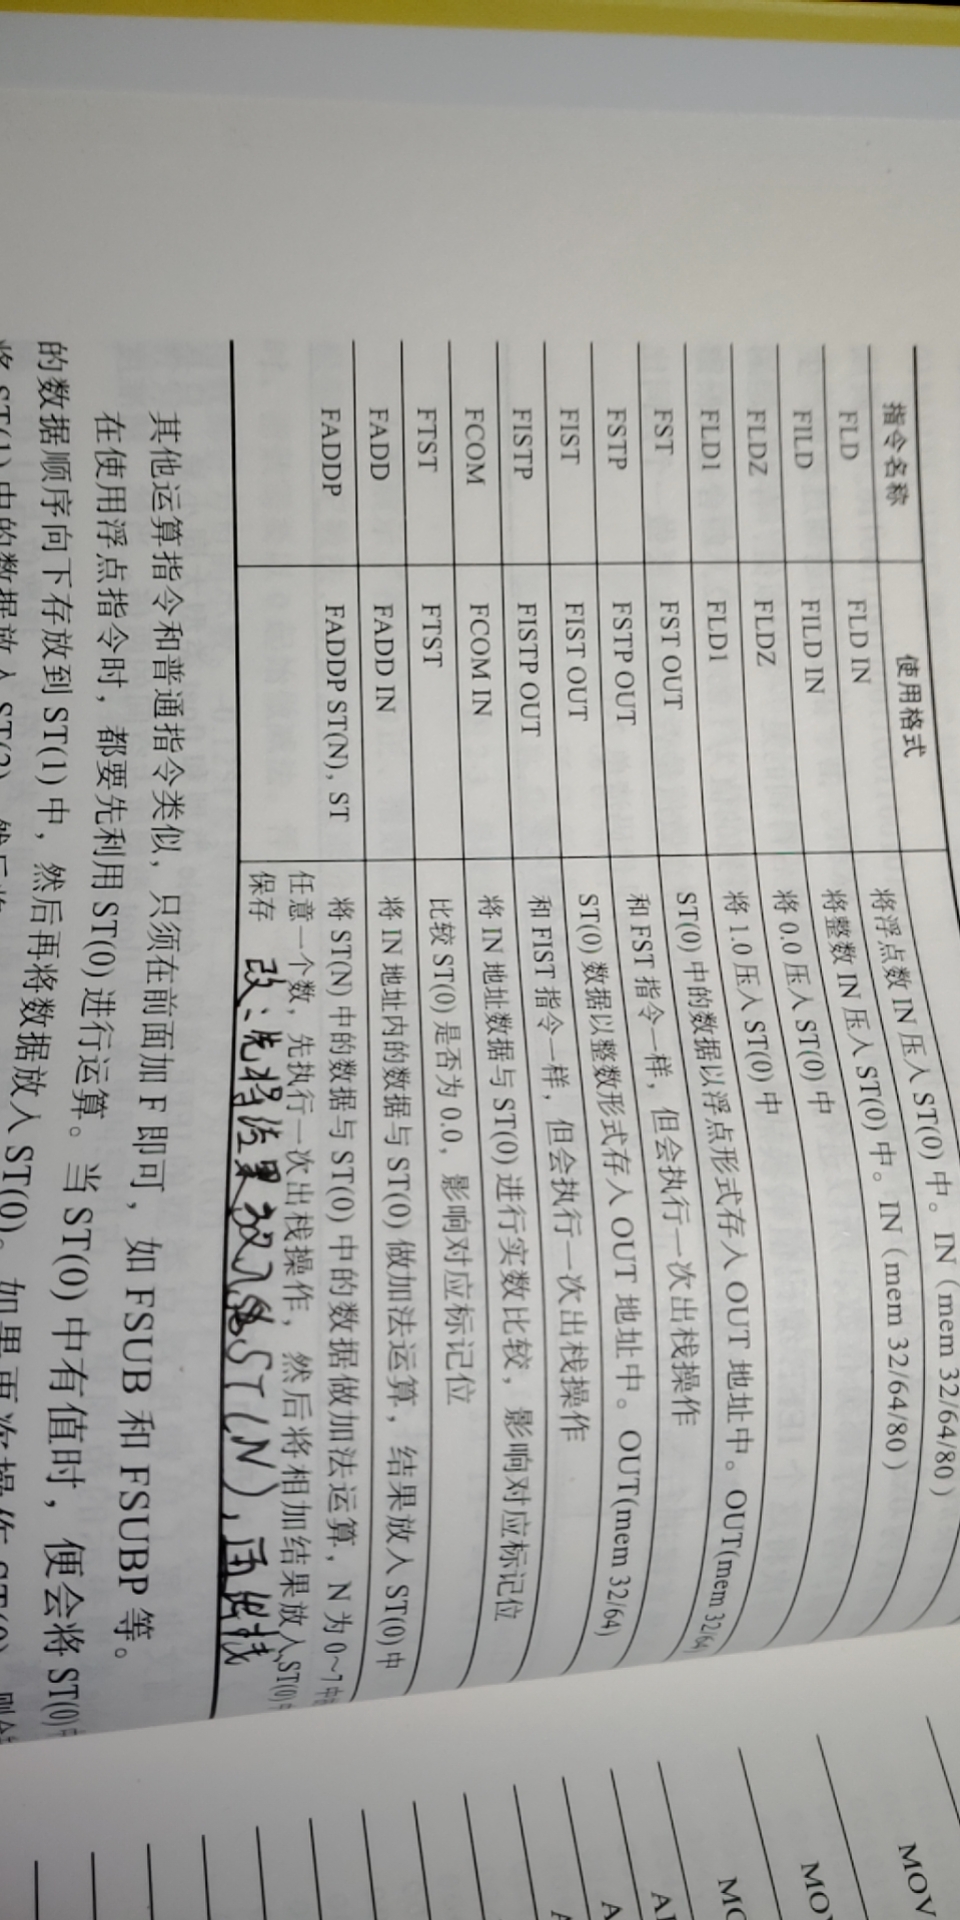 指令名称 使用格式
FLD FLD IN 将浮点数 IN 压入 ST(0) 中。IN（mem 32/64/80）
FILD FILD IN 将整数 IN 压入 ST(0) 中。IN（mem 32/64/80）
FLDZ FLDZ 将 0.0 压入 ST(0) 中
FLD1 FLD1 将 1.0 压入 ST(0) 中
FST FST OUT ST(0) 中的数据以浮点形式存入 OUT 地址中。OUT(mem 32/64)
FSTP FSTP OUT 和 FST 指令一样，但会执行一次出栈操作
FIST FIST OUT ST(0) 数据以整数形式存入 OUT 地址中。OUT(mem 32/64)
FISTP FISTP OUT 和 FIST 指令一样，但会执行一次出栈操作
FCOM FCOM IN 将 IN 地址数据与 ST(0) 进行实数比较，影响对应标记位
FTST FTST 比较 ST(0) 是否为 0.0，影响对应标记位
FADD FADD IN 将 IN 地址内的数据与 ST(0) 做加法运算，结果放入 ST(0) 中
FADDP FADDP ST(N), ST 将 ST(N) 中的数据与 ST(0) 中的数据做加法运算，N 为 0~7 中
任意一个数，先执行一次出栈操作，然后将相加结果放入 ST(0)
保存
改：先将结果放入ST(N)，再出栈
其他运算指令和普通指令类似，只须在前面加 F 即可，如 FSUB 和 FSUBP 等。
在使用浮点指令时，都要先利用 ST(0) 进行运算。当 ST(0) 中有值时，便会将 ST(0)
的数据顺序向下存放到 ST(1) 中，然后再将数据放入 ST(0)。如果再次操作 ST(0)，则
将 ST(1) 中的数据放入 ST(2)，然后将
MOV
MOV